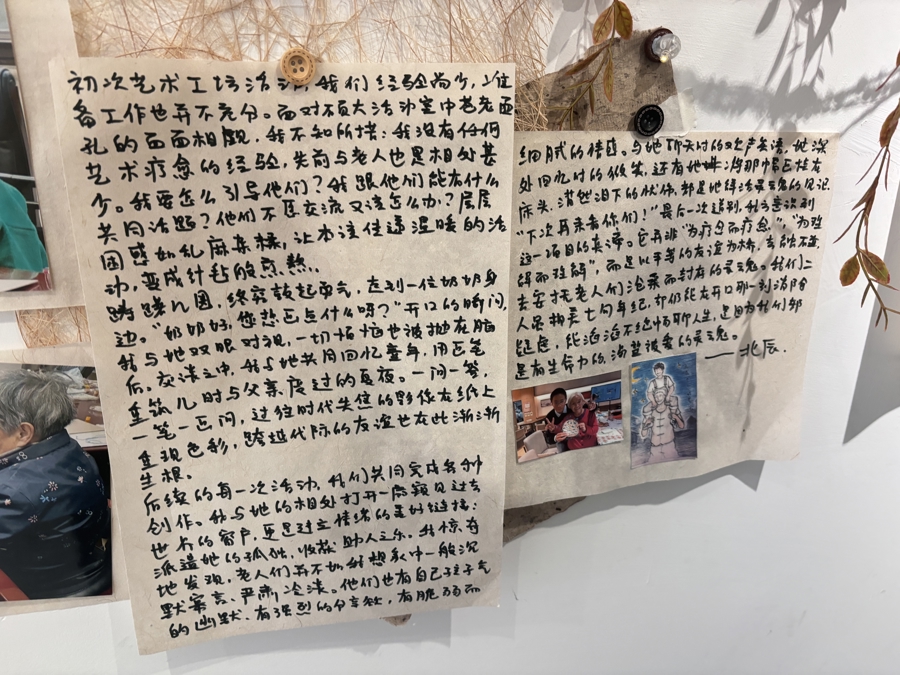 初次艺术工坊活动,我们经验尚少,准
备工作也并不充分。面对不顾大活动室中老老面
孔的面面相觑,我不知所措:我没有任何
艺术疗愈的经验,先前与老人也是相处甚
少。我要怎么引导他们?我跟他们能有什么
共同话题?他们不愿交流又该怎么办?层层
困惑如乱麻杂糅,让本该传递温暖的活
动,变成针毡般煎熬。
踌躇几圈,终究鼓起勇气,走到一位奶奶身
边。“奶奶好,您想画点什么呀?”开口的瞬间,
我与她双眼对视,一切恼恼也被抛在脑
后。交谈之中,我与她共同回忆童年,用画笔
重筑儿时与父亲度过的夏夜。一问一答,
一笔一画间,过往时代失位的影像在纸上
重现色彩,跨越代际的友谊也在此渐渐
生根。
后续的每一次活动,我们共同完成各种
创作。我与她的相处打开一扇窥见过去
世界的窗户,更是建立情绪的美好链接:
派遣她的孤独,收获助人之乐。我惊奇
地发现,老人们并不如我想象中一般沉
默寡言、严肃冷淡。他们也有自己
的幽默,有强烈的分享欲,有脆弱而
细腻的情感。与她聊天时的欢声笑语,她深
处回忆时的微笑,还有她将那幅画挂在
床头,潸然泪下的状,都是她鲜活灵魂的见证
“下次再来看你们!”最后一次道别,我方意识到
这一项目的真谛。它并非“为疗愈而疗愈”、“为难
得而难解”,而是以平等的友谊为桥,去
去寻找老人们沧桑而封存的灵魂。我们二
人虽相差七旬年纪,却仍能在开口那一刻消弭
能滔滔不绝畅聊人生,是因为我们都
是有生命力的,渴望被爱的灵魂。
——北辰.